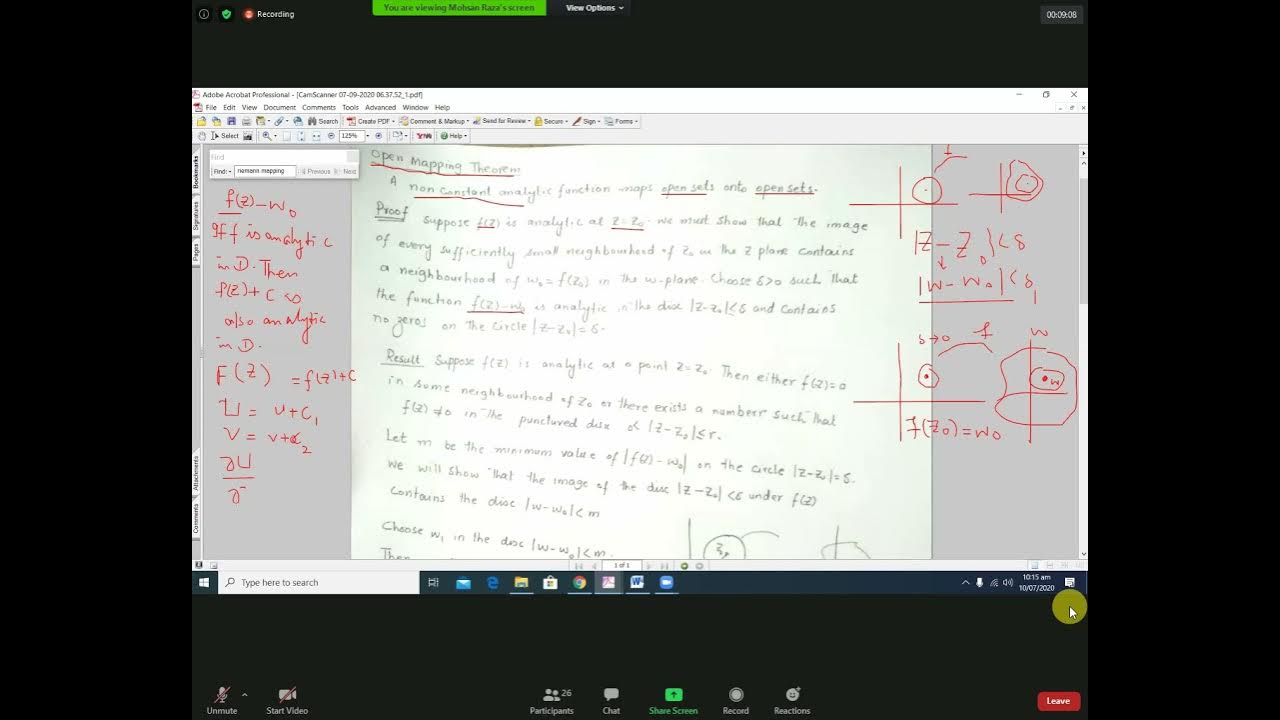 Recording
You are viewing Mohsan Raza's screen
View Options
00:09:08
Adobe Acrobat Professional - [CamScanner 07-09-2020 06.37.52_1.pdf]
File Edit View Document Comments Tools Advanced Window Help
Search Create PDF Comment & Markup Send for Review Secure Sign Forms
Select 125% Help
Find
Find: riemann mapping Previous Next
Bookmarks
Signatures
Pages
Attachments
Comments
Open Mapping Theorem
A non constant analytic function maps open sets onto open sets.
Proof Suppose f(z) is analytic at z=z₀. we must show that the image
of every sufficiently small neighbourhood of z₀ in the z plane contains
a neighbourhood of w₀=f(z₀) in the w-plane. Choose δ>0 such that
the function f(z)-w₀ is analytic in the disc |z-z₀|≤δ and contains
no zeros on the circle |z-z₀|=δ.
Result Suppose f(z) is analytic at a point z=z₀. Then either f(z)=0
in some neighbourhood of z₀ or there exists a number r such that
f(z)≠0 in the punctured disc 0<|z-z₀|≤r.
Let m be the minimum value of |f(z)-w₀| on the circle |z-z₀|=δ.
We will show that the image of the disc |z-z₀|<δ under f(z)
contains the disc |w-w₀|<m
Choose w₁ in the disc |w-w₀|<m.
Then
z₀
f(z)-w₀
If f is analytic
in D. Then
f(z)+c is
also analytic
in D.
F(z) = f(z)+c
U = u+c₁
V = v+c₂
∂U
∂
f
|z-z₀|<δ
|w-w₀|<δ₁
δ→0 f w
w
f(z₀)=w₀
1 of 1
Type here to search
10:15 am
10/07/2020
Unmute
Start Video
26
Participants
Chat
Share Screen
Record
Reactions
Leave